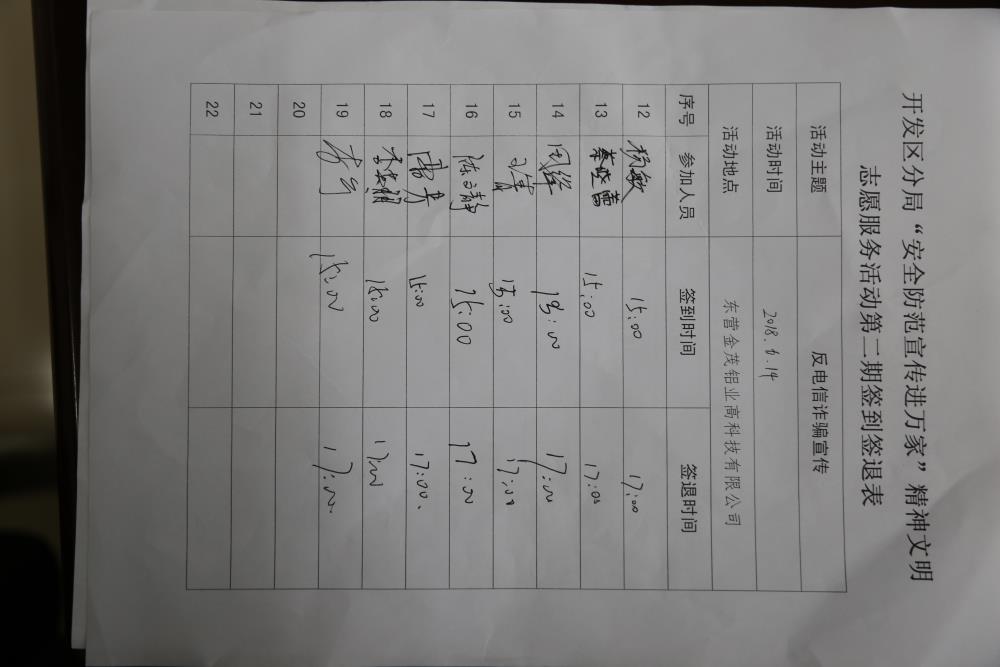 开发区分局“安全防范宣传进万家”精神文明
志愿服务活动第二期签到签退表
活动主题 反电信诈骗宣传
活动时间 2018.6.14
活动地点 东营金茂铝业高科技有限公司
序号 参加人员 签到时间 签退时间
12 杨敏 15:00 17:00
13 秦晓蕾 15:00 17:00
14 周峰 15:00 17:00
15 15:00 17:00
16 陈立静 15:00 17:00
17 15:00 17:00.
18 15:00 17:00
19 15:00 17:00.
20
21
22